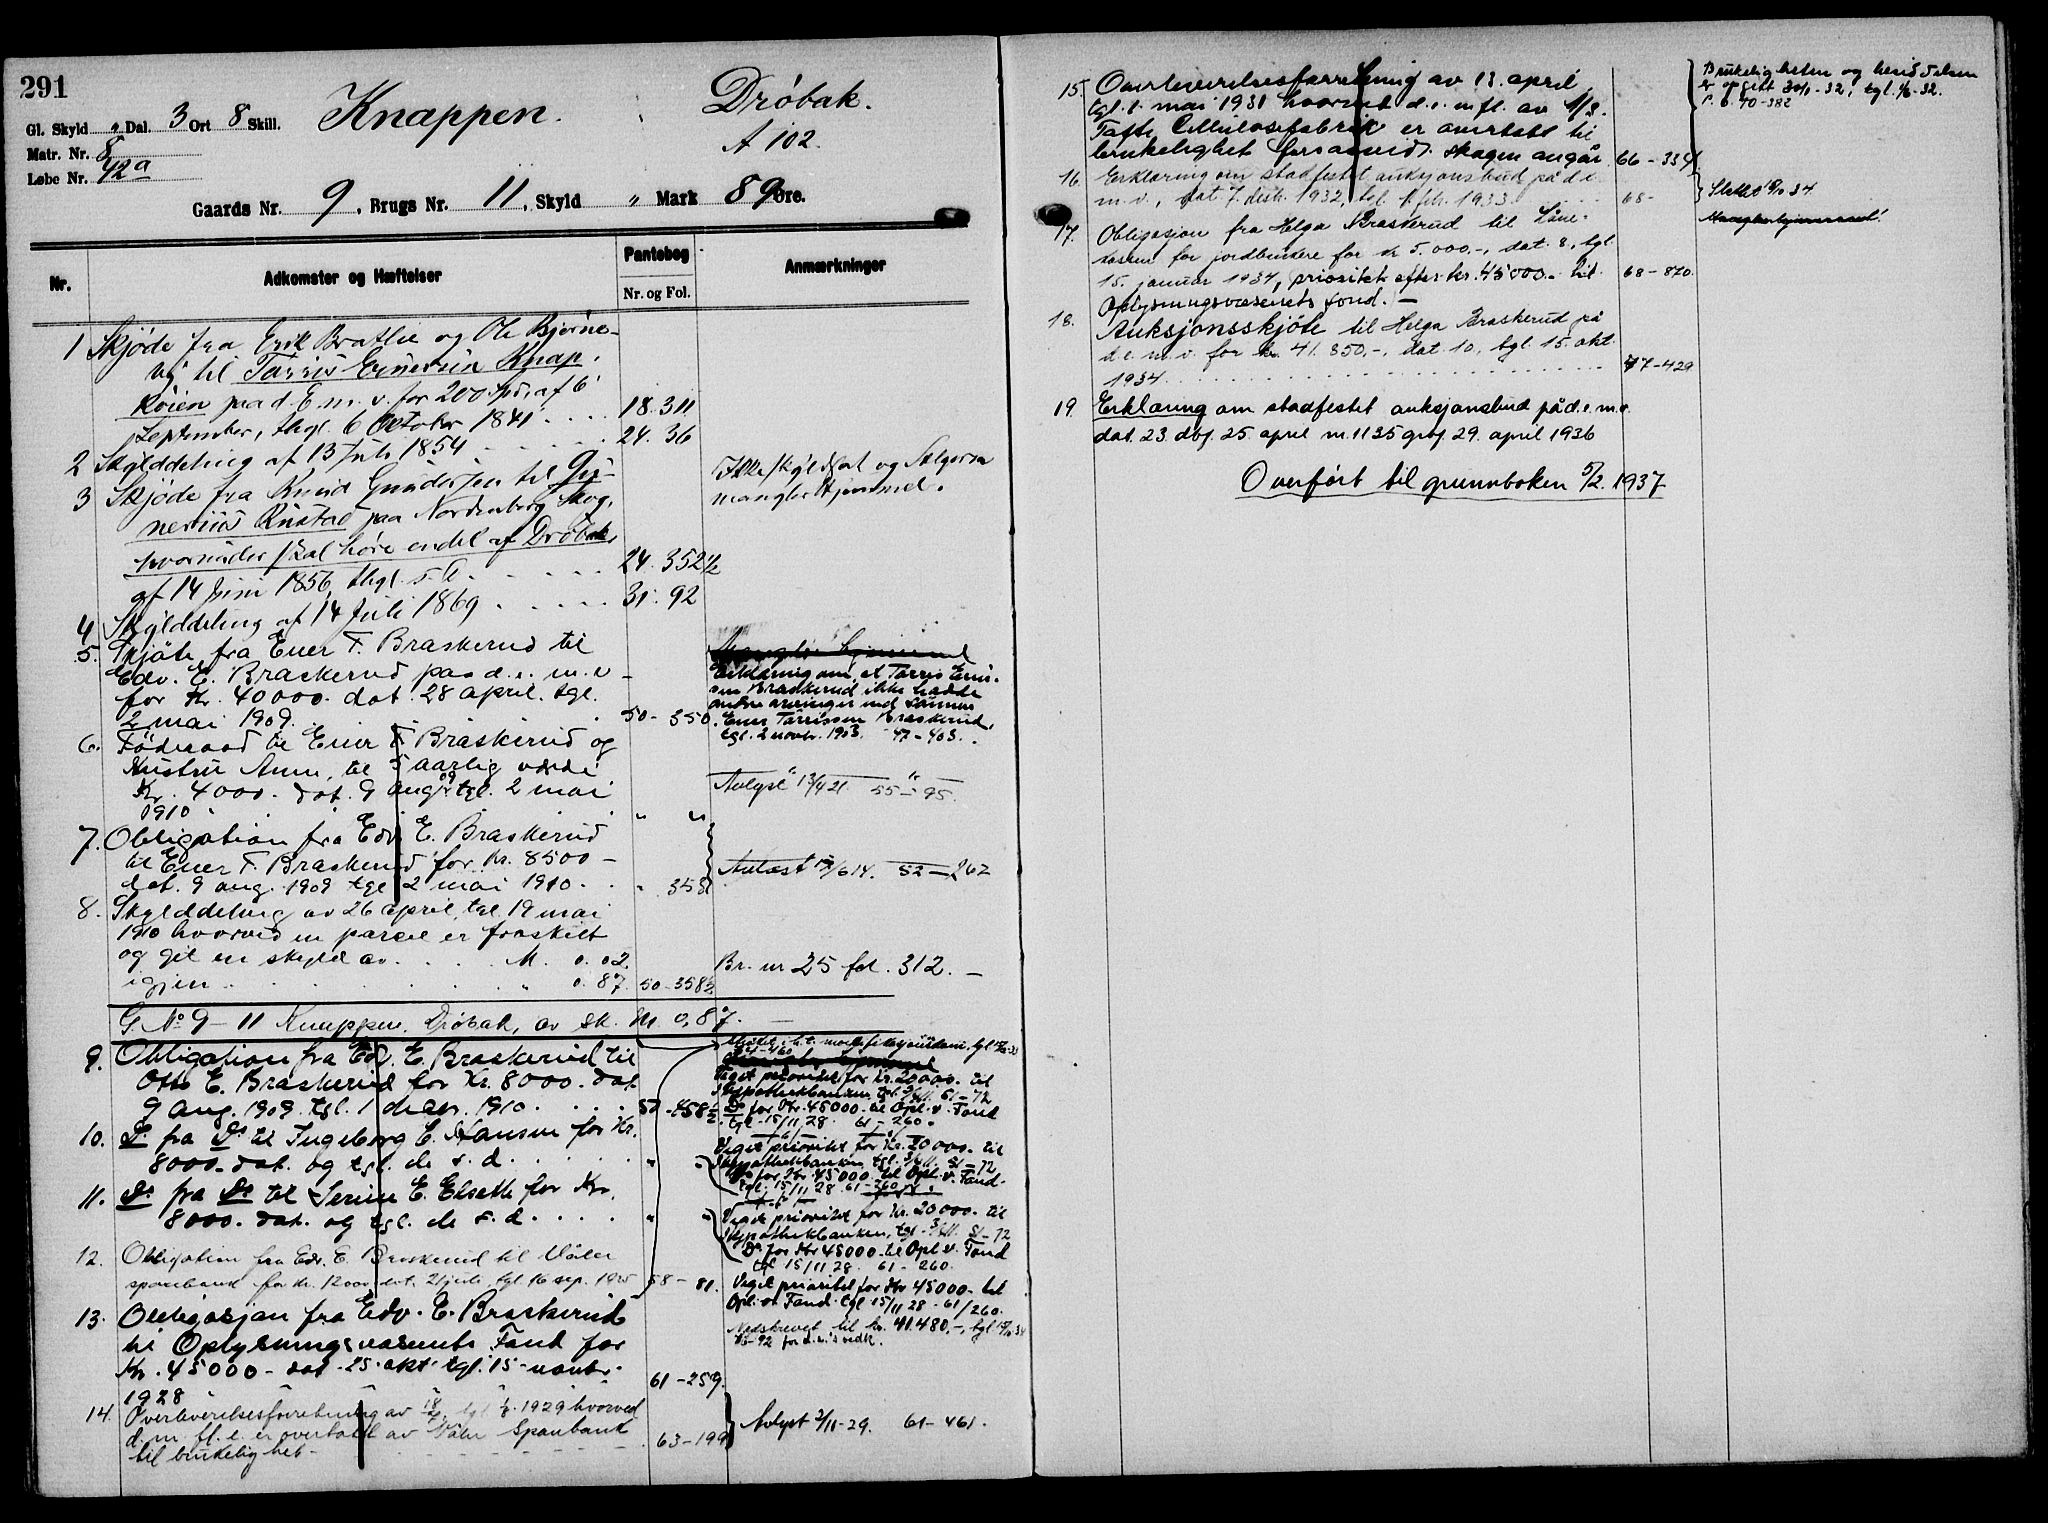 291
Gl. Skyld " Dal. 3 Ort 8 Skill.
Knappen.
Dröbak.
A 102.
Matr. Nr. 8
Løbe Nr. 42a
Gaards Nr. 9, Brugs Nr. 11, Skyld " Mark 89 Øre.
Nr.
Adkomster og Hæftelser
Pantebog
Nr. og Fol.
Anmærkninger
1 Skjöde fra Erik Bratlie og Ole Björne-
til Tarris Enersen Knap-
köien paa d. E. m. v. for 200 Spd. af 6
September, thgl. 6 October 1841 . . . 18. 311
2 Skylddeling af 13 Juli 1854 . . . . 24. 36
3 Skjöde fra Knud Gundersen til Gu-
nerius Rustad paa Nordenberg Skog,
hvorunder skal höre endel af Dröbak,
af 14 Juni 1856, thgl. s. d. . . . . 24. 352½
Ikke skyldsat og Sælgeren
mangler Hjemmel.
4 Skylddeling af 14 Juli 1869 . . . . 31. 92
5. Skjöte fra Ener T. Braskerud til
Edv. E. Braskerud paa d. e. m. v.
for Kr. 40000. dat. 28 april. tgl.
2 mai 1909. . 50 - 350.
Mangler hjemmel
Erklæring om, at Tarris Ener-
sen Braskerud ikke hadde
andre arvinger end sønnen
Ener Tarrissen Braskerud,
tgl. 2 novbr. 1903. 47 - 403.
6. Föderaad til Ener T. Braskerud og
Hustru Anne, til 5 aarlig værdi
Kr. 4000. dat. 9 aug. 09 tgl. 2 mai
1910 . . . " "
Avlyst 13/4 21 55 - 95.
7. Obligation fra Edv. E. Braskerud
til Ener T. Braskerud for Kr. 8500 -
dat. 9 aug. 1909 tgl 2 mai 1910. . " 358
Avlæst 13/6 14. 52 - 262
8. Skylddeling av 26 april, tgl. 19 mai
1910 hvorved en parcel er fraskilt
og git en skyld av . . . . M. 0.02.
igjen . . . . . . " 0.87. 50 - 358½
Br. nr 25 fol. 312. -
G No 9 - 11 Knappen. Dröbak, av sk. M 0,87. -
9. Obligation fra Edv. E. Braskerud til
Otto E. Braskerud for Kr. 8000. dat
9 aug. 1909. tgl. 1 decbr. 1910. . . . 50 - 458½
Veget prioritet for Kr. 20000. til
Hypothekbanken tgl. 51 - 72
Do for Kr 45000 - til Opl. v. Fond
tgl - 15/11 28. 61 - 260.
10. Do fra Do til Ingeborg E. Hansen for Kr.
8000. dat. og tgl. de s. d. . . . . " "
Veget prioritet for Kr. 20000. til
Hypothekbanken tgl. 51 - 72
Do for Kr 45000. til Opl. v. Fond.
tgl. 15/11 28 61 - 260
11. Do fra Do til Serine E. Elseth for Kr.
8000. dat. og tgl. de s. d. . . . . " "
Veget prioritet for Kr. 20000. til
Hypothekbanken, tgl. 51 - 72
Do for Kr 45000 - til Opl v. Fond
tgl 15/11 28. 61 - 260.
12. Obligation fra Edv. E. Braskerud til Våler
sparebank for kr. 12000, dat. 21 juli, tgl 16 sep. 1925 58 - 81.
Veget prioritet for Kr 45000 - til
Opl. v. Fond. tgl 15/11 28 - 61/260.
13. Obligasjon fra Edv. E. Braskerud
til Oplysningsvæsenets Fond for
Kr. 45000 - dat - 25. okt. tgl. 15 - novbr.
1928 61 - 259.
Nedskrevet til kr. 41.480,-, tgl
14. Overleverelsesforretning av 18/4, tgl 1929 hvorved
d. m. fl. e. er overtatt av Våler Sparebank
til brukelighet - - - - - - 63 - 199
Avlyst 2/11 - 29. 61 - 461.
15. Overleverelsesforretning av 13. april,
tgl. 1. mai 1931 hvorved d. e. m fl. av A/S.
Tofte Cellulosefabrik er overtatt til
brukelighet forsåvidt skogen angår 66 - 334
Brukeligheten og hend delsen
er opgitt 30/1 - 32, tgl.
P. b. 70 - 382
16. Erklæring om stadfestet auksjonsbud på d. e.
m. v., dat. 7. desbr. 1932, tgl. 1. febr. 1933 . . . 68 -
Slettet 15/10 34
17. Obligasjon fra Helga Braskerud til Låne-
kassen for jordbrukere for kr 5.000.-, dat. 8., tgl.
15. januar 1934, prioritet efter kr. 45000.- til
Oplysningsvæsenets fond. - 68 - 870.
Mangler hjemmel!
18. Auksjonsskjöte til Helga Braskerud på
d. e. m. v. for kr. 41.850,-, dat. 10., tgl. 15. okt.
1934 . . . . . . . . 77 - 429
19 Erklæring om stadfestet auksjonsbud på d. e. m. v.
dat. 23. dbf. 25. april nr. 1135 grbf. 29. april 1936
Overfört til grunnboken 5/2. 1937